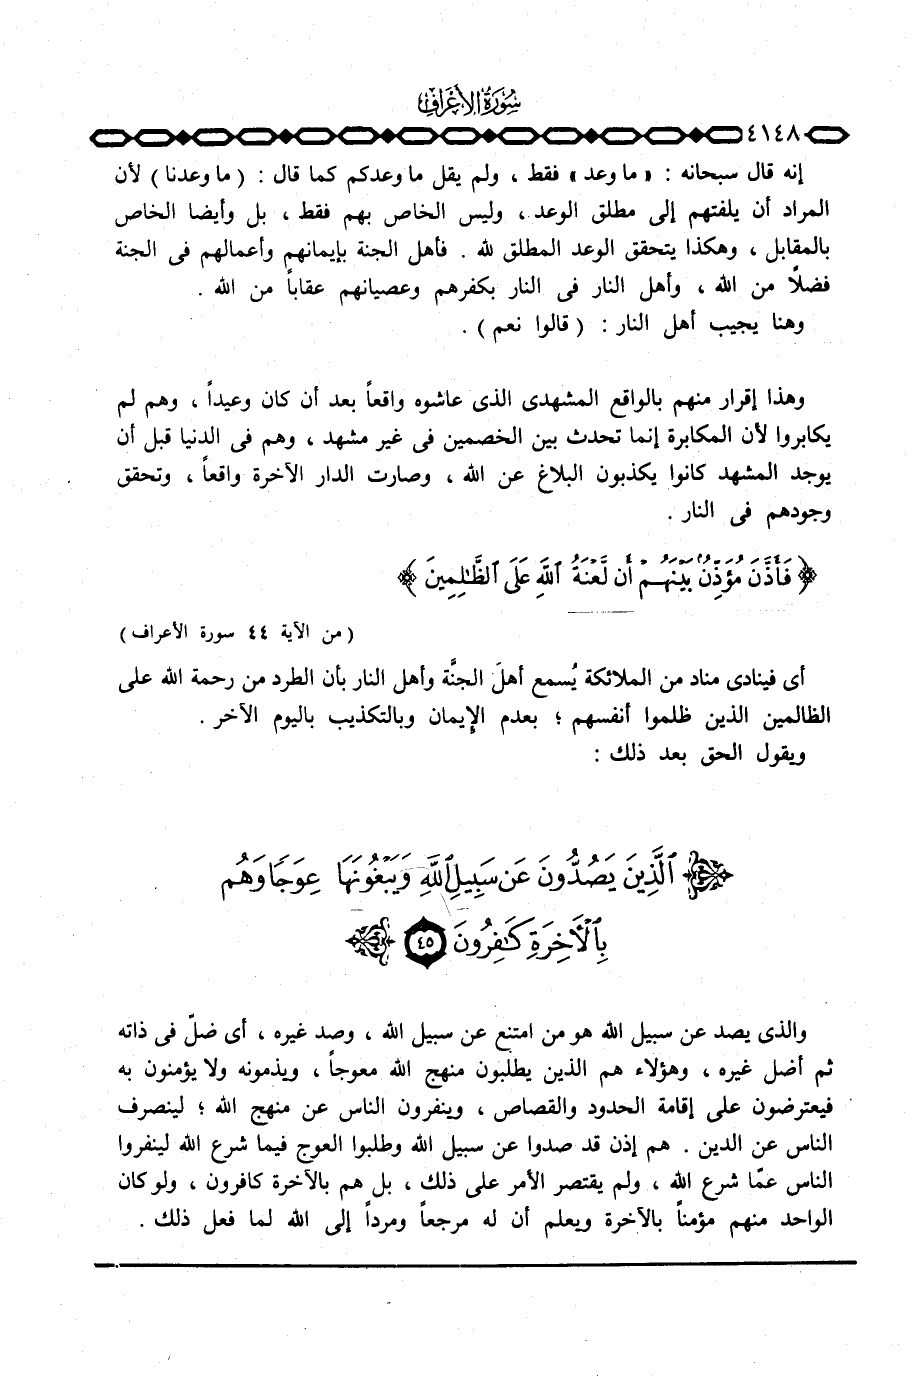 سُورَةُ الأَعْرَافِ
٤١٤٨
إنه قال سبحانه : « ما وعد » فقط ، ولم يقل ما وعدكم كما قال : ( ما وعدنا ) لأن
المراد أن يلفتهم إلى مطلق الوعد ، وليس الخاص بهم فقط ، بل وأيضا الخاص
بالمقابل ، وهكذا يتحقق الوعد المطلق لله . فأهل الجنة بإيمانهم وأعمالهم فى الجنة
فضلاً من الله ، وأهل النار فى النار بكفرهم وعصيانهم عقاباً من الله .
وهنا يجيب أهل النار : ( قالوا نعم ) .
وهذا إقرار منهم بالواقع المشهدى الذى عاشوه واقعاً بعد أن كان وعيداً ، وهم لم
يكابروا لأن المكابرة إنما تحدث بين الخصمين فى غير مشهد ، وهم فى الدنيا قبل أن
يوجد المشهد كانوا يكذبون البلاغ عن الله ، وصارت الدار الآخرة واقعاً ، وتحقق
وجودهم فى النار .
﴿ فَأَذَّنَ مُؤَذِّنٌ بَيْنَهُمْ أَن لَّعْنَةُ ٱللَّهِ عَلَى ٱلظَّٰلِمِينَ ﴾
( من الآية ٤٤ سورة الأعراف )
أى فينادى مناد من الملائكة يُسمع أهلَ الجنَّة وأهل النار بأن الطرد من رحمة الله على
الظالمين الذين ظلموا أنفسهم ؛ بعدم الإيمان وبالتكذيب باليوم الآخر .
ويقول الحق بعد ذلك :
﴿ ٱلَّذِينَ يَصُدُّونَ عَن سَبِيلِ ٱللَّهِ وَيَبْغُونَهَا عِوَجًا وَهُم
بِٱلْأَخِرَةِ كَٰفِرُونَ ٤٥ ﴾
والذى يصد عن سبيل الله هو من امتنع عن سبيل الله ، وصد غيره ، أى ضلّ فى ذاته
ثم أضل غيره ، وهؤلاء هم الذين يطلبون منهج الله معوجاً ، ويذمونه ولا يؤمنون به
فيعترضون على إقامة الحدود والقصاص ، وينفرون الناس عن منهج الله ؛ لينصرف
الناس عن الدين . هم إذن قد صدوا عن سبيل الله وطلبوا العوج فيما شرع الله لينفروا
الناس عمّا شرع الله ، ولم يقتصر الأمر على ذلك ، بل هم بالآخرة كافرون ، ولو كان
الواحد منهم مؤمناً بالآخرة ويعلم أن له مرجعاً ومرداً إلى الله لما فعل ذلك .